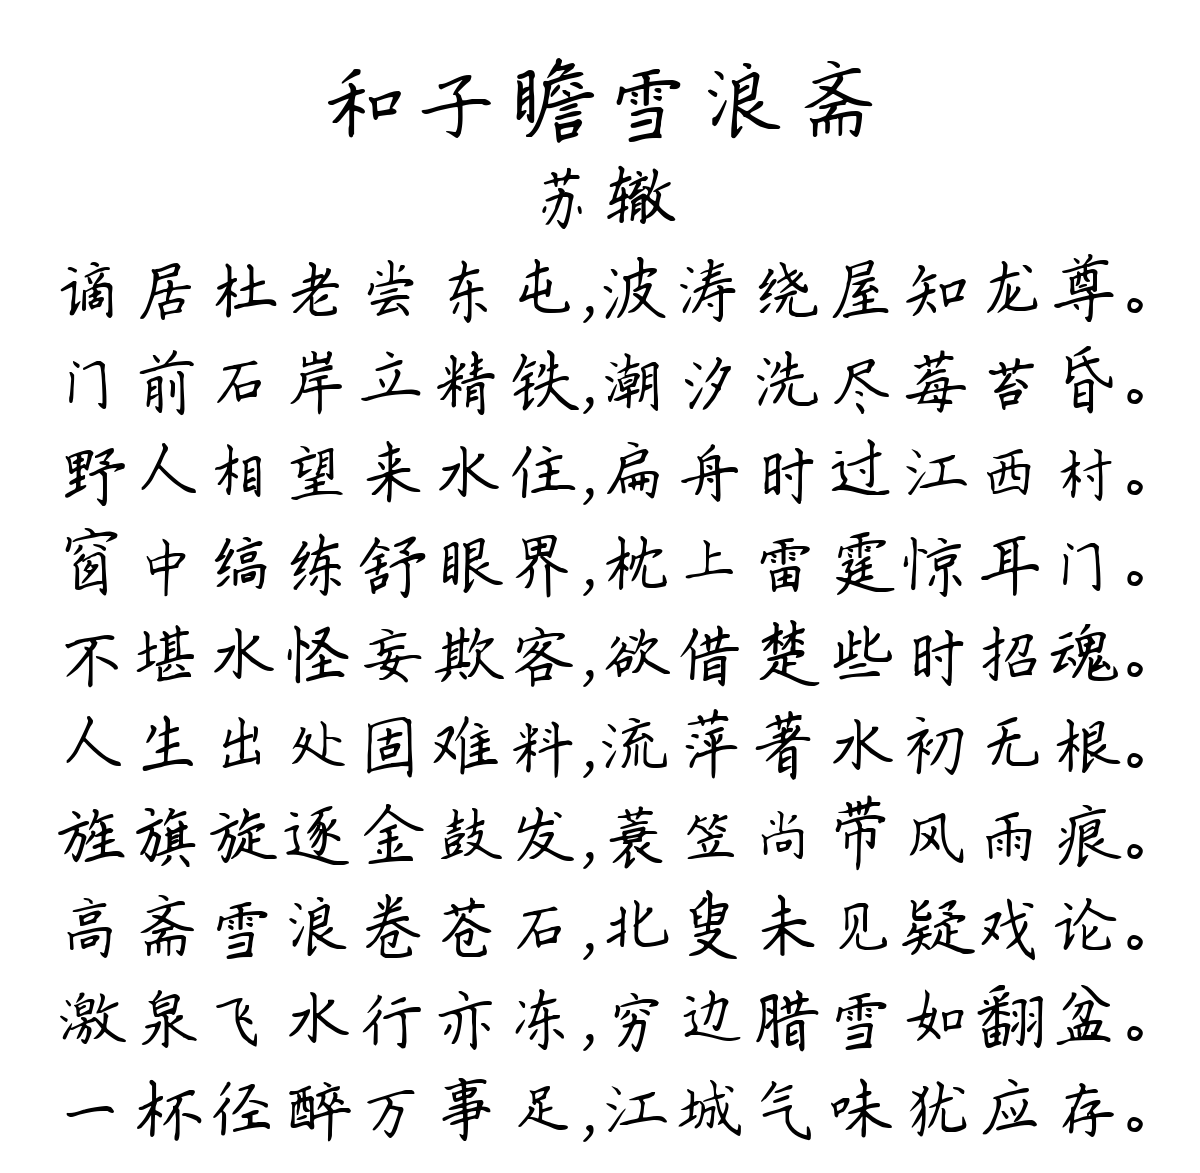 和子瞻雪浪斋
苏辙
谪居杜老尝东屯,波涛绕屋知龙尊。
门前石岸立精铁,潮汐洗尽莓苔昏。
野人相望夹水住,扁舟时过江西村。
窗中缟练舒眼界,枕上雷霆惊耳门。
不堪水怪妄欺客,欲借楚些时招魂。
人生出处固难料,流萍著水初无根。
旌旗旋逐金鼓发,蓑笠尚带风雨痕。
高斋雪浪卷苍石,北叟未见疑戏论。
激泉飞水行亦冻,穷边腊雪如翻盆。
一杯径醉万事足,江城气味犹应存。